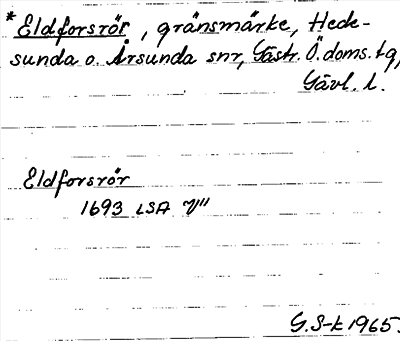 *Eldforsrör, gränsmärke, Hede-
sunda o. Årsunda snr, Gästr. Ö. doms. tg,
Gävl. l.
Eldforsrör
1693 LSA V"
G. S-k 1965.